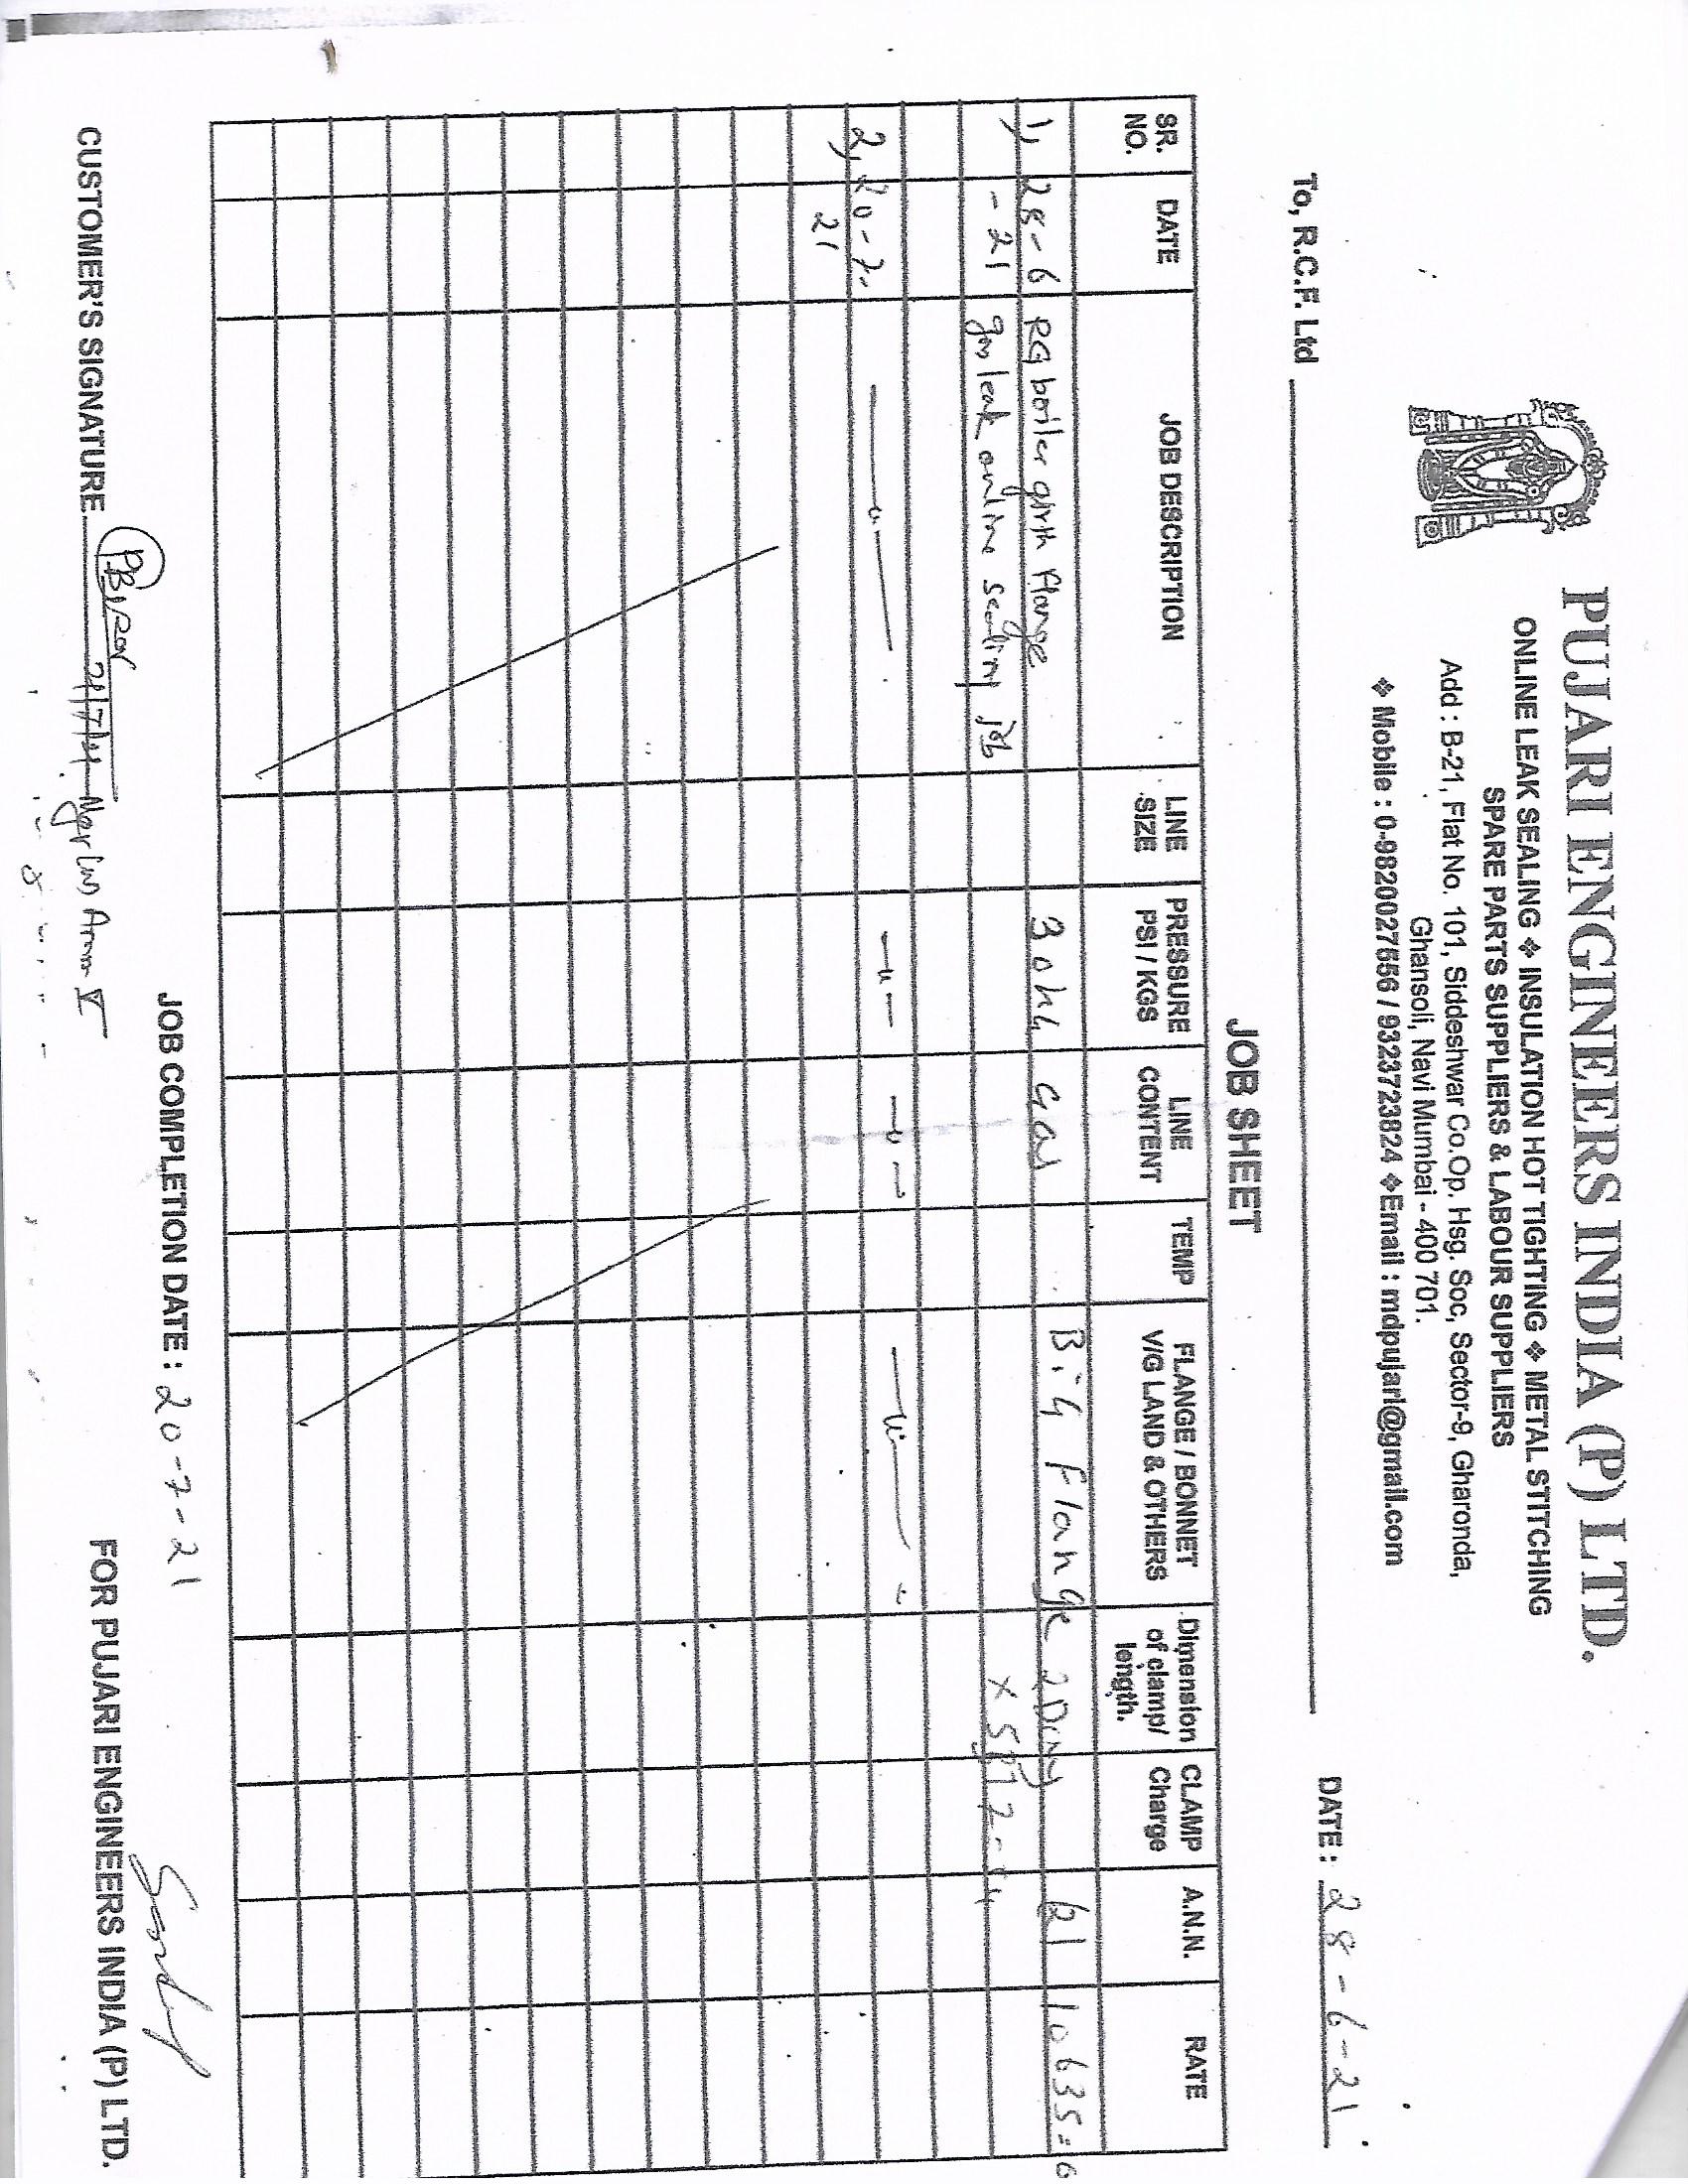 PUJARI ENGINEERS INDIA (P) LTD.
ONLINE LEAK SEALING ❖ INSULATION HOT TIGHTING ❖ METAL STITCHING
SPARE PARTS SUPPLIERS & LABOUR SUPPLIERS
Add : B-21, Flat No. 101, Siddeshwar Co.Op. Hsg. Soc, Sector-9, Gharonda,
Ghansoli, Navi Mumbai - 400 701.
❖ Mobile : 0-9820027656 / 9323723824 ❖Email : mdpujari@gmail.com
To, R.C.F. Ltd DATE : 28-6-21
JOB SHEET
SR. NO. DATE JOB DESCRIPTION LINE SIZE PRESSURE PSI / KGS LINE CONTENT TEMP FLANGE / BONNET V/G LAND & OTHERS Dimension of clamp/ length. CLAMP Charge A.N.N. RATE
1, 28-6 RG boiler girth flange Gas Big Flange 2 Day 21 10635=
-21 gas leak online sealing job
2, 20-7- —"— —"— —"— —"—
21
JOB COMPLETION DATE : 20-7-21
CUSTOMER'S SIGNATURE Mgr (M) Amm V
FOR PUJARI ENGINEERS INDIA (P) LTD.